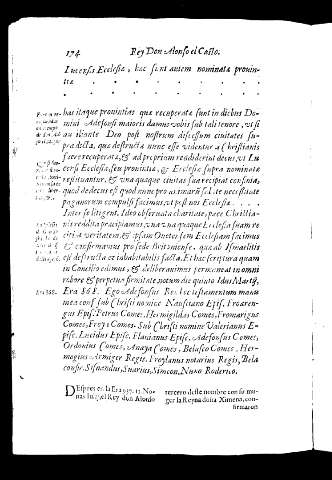 174 Rey Don Alonso el Casto.
Lucensis Ecclesiæ, hac sunt autem nominata provin-
tiæ
has itaque provintias que recoperatæ sunt in diebus Do-
mini Adefonsi maioris damus vobis sub tali tenore, ut si
au iliante Deo post nostrum discessum civitates su-
pra dicta, quæ destructa nunc esse videntur a Christianis
facere recuperatæ, & ad proprium reddiderit decus, ut Lu
censi Ecclesiæ suæ provintiæ, & Ecclesiæ supra nominatæ
restituantur, & una quaque civitas sua recipiat confinia,
quod dedecus est quod nunc pro animarum salute necessitate
paganorum compulsi facimus, ut post nos Ecclesiæ
Inter se litigent. Ideo observata charitate, pace Christia-
nis reddita præcipimus, ut una quæque Ecclesia suam re
& confirmamus pro sede Britoniense. quæ ab Ismaelitis
est destructa et inhabitabilis facta. Et hæc scriptura quam
in Concilio edimus, & deliberavimus permaneat in omni
robore & perpetua firmitate. notum die quinto Idus Martij,
Era 868. Ego Adefonsus Rex hoc testamentum manu
mea conf. sub Christi nomine Naustiano Epis. Froaren-
gus Epis. Petrus Come. Hermigildus Comes, Fromarigus
Comes, Froyla Comes. Sub Christi nomine Valerianus E-
pisc. Lucidus Episc. Flavianus Episc. Adefonsus Comes,
Ordonius Comes, Anaya Comes, Belasco Comes, Her-
mogius Armiger Regis. Froylanus notarius Regis, Bela
confir. Sisnandus, Suarius, Simeon, Nuno Roderico.
DEspues en la Era
nas Iu el Rey don Alonso
tercero deste nombre con su mu-
ger la Reyna doña Ximena, con-
firmaron